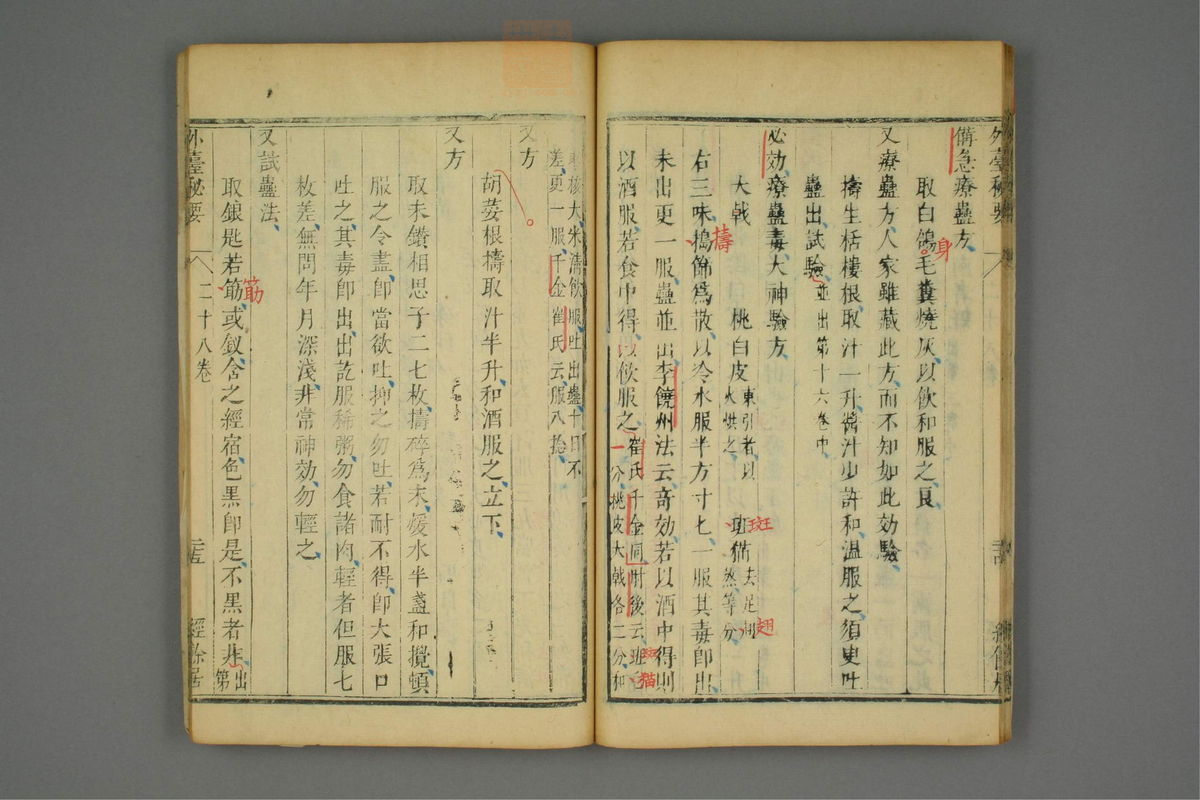 備急療蠱方
取白鴿毛糞燒灰以飲和服之良
身
又療蠱方人家雖藏此方而不知如此効驗
擣生栝樓根取汁一升醬汁少許和溫服之須臾吐
蠱出試驗並出第十六卷中
必効療蠱毒大神驗方
大戟 桃白皮東引者以火烘之 斑猫去足翅熬等分
斑
翅
右三味搗篩爲散以冷水服半方寸七一服其毒卽出
擣
未出更一服蠱並出李饒州法云奇効若以酒中得則
以酒服若食中得以飲服之崔氏千金同肘後云班毛
一分桃皮大戟各二分和
斑猫
棗核大米清飲服吐出蠱十日不
差更一服千金崔氏云服八捻
又方
胡荽根擣取汁半升和酒服之立下
又方
取未鑽相思子二七枚擣碎爲末煖水半盞和攪頓
服之令盡卽當欲吐抑之勿吐若耐不得卽大張口
吐之其毒卽出出訖服稀粥勿食諸肉輕者但服七
枚差無問年月深淺非常神効勿輕之
又試蠱法
取銀匙若筯或釵含之經宿色黑卽是不黑者非出第
筯
外臺秘要 二十八卷 二五 經餘居